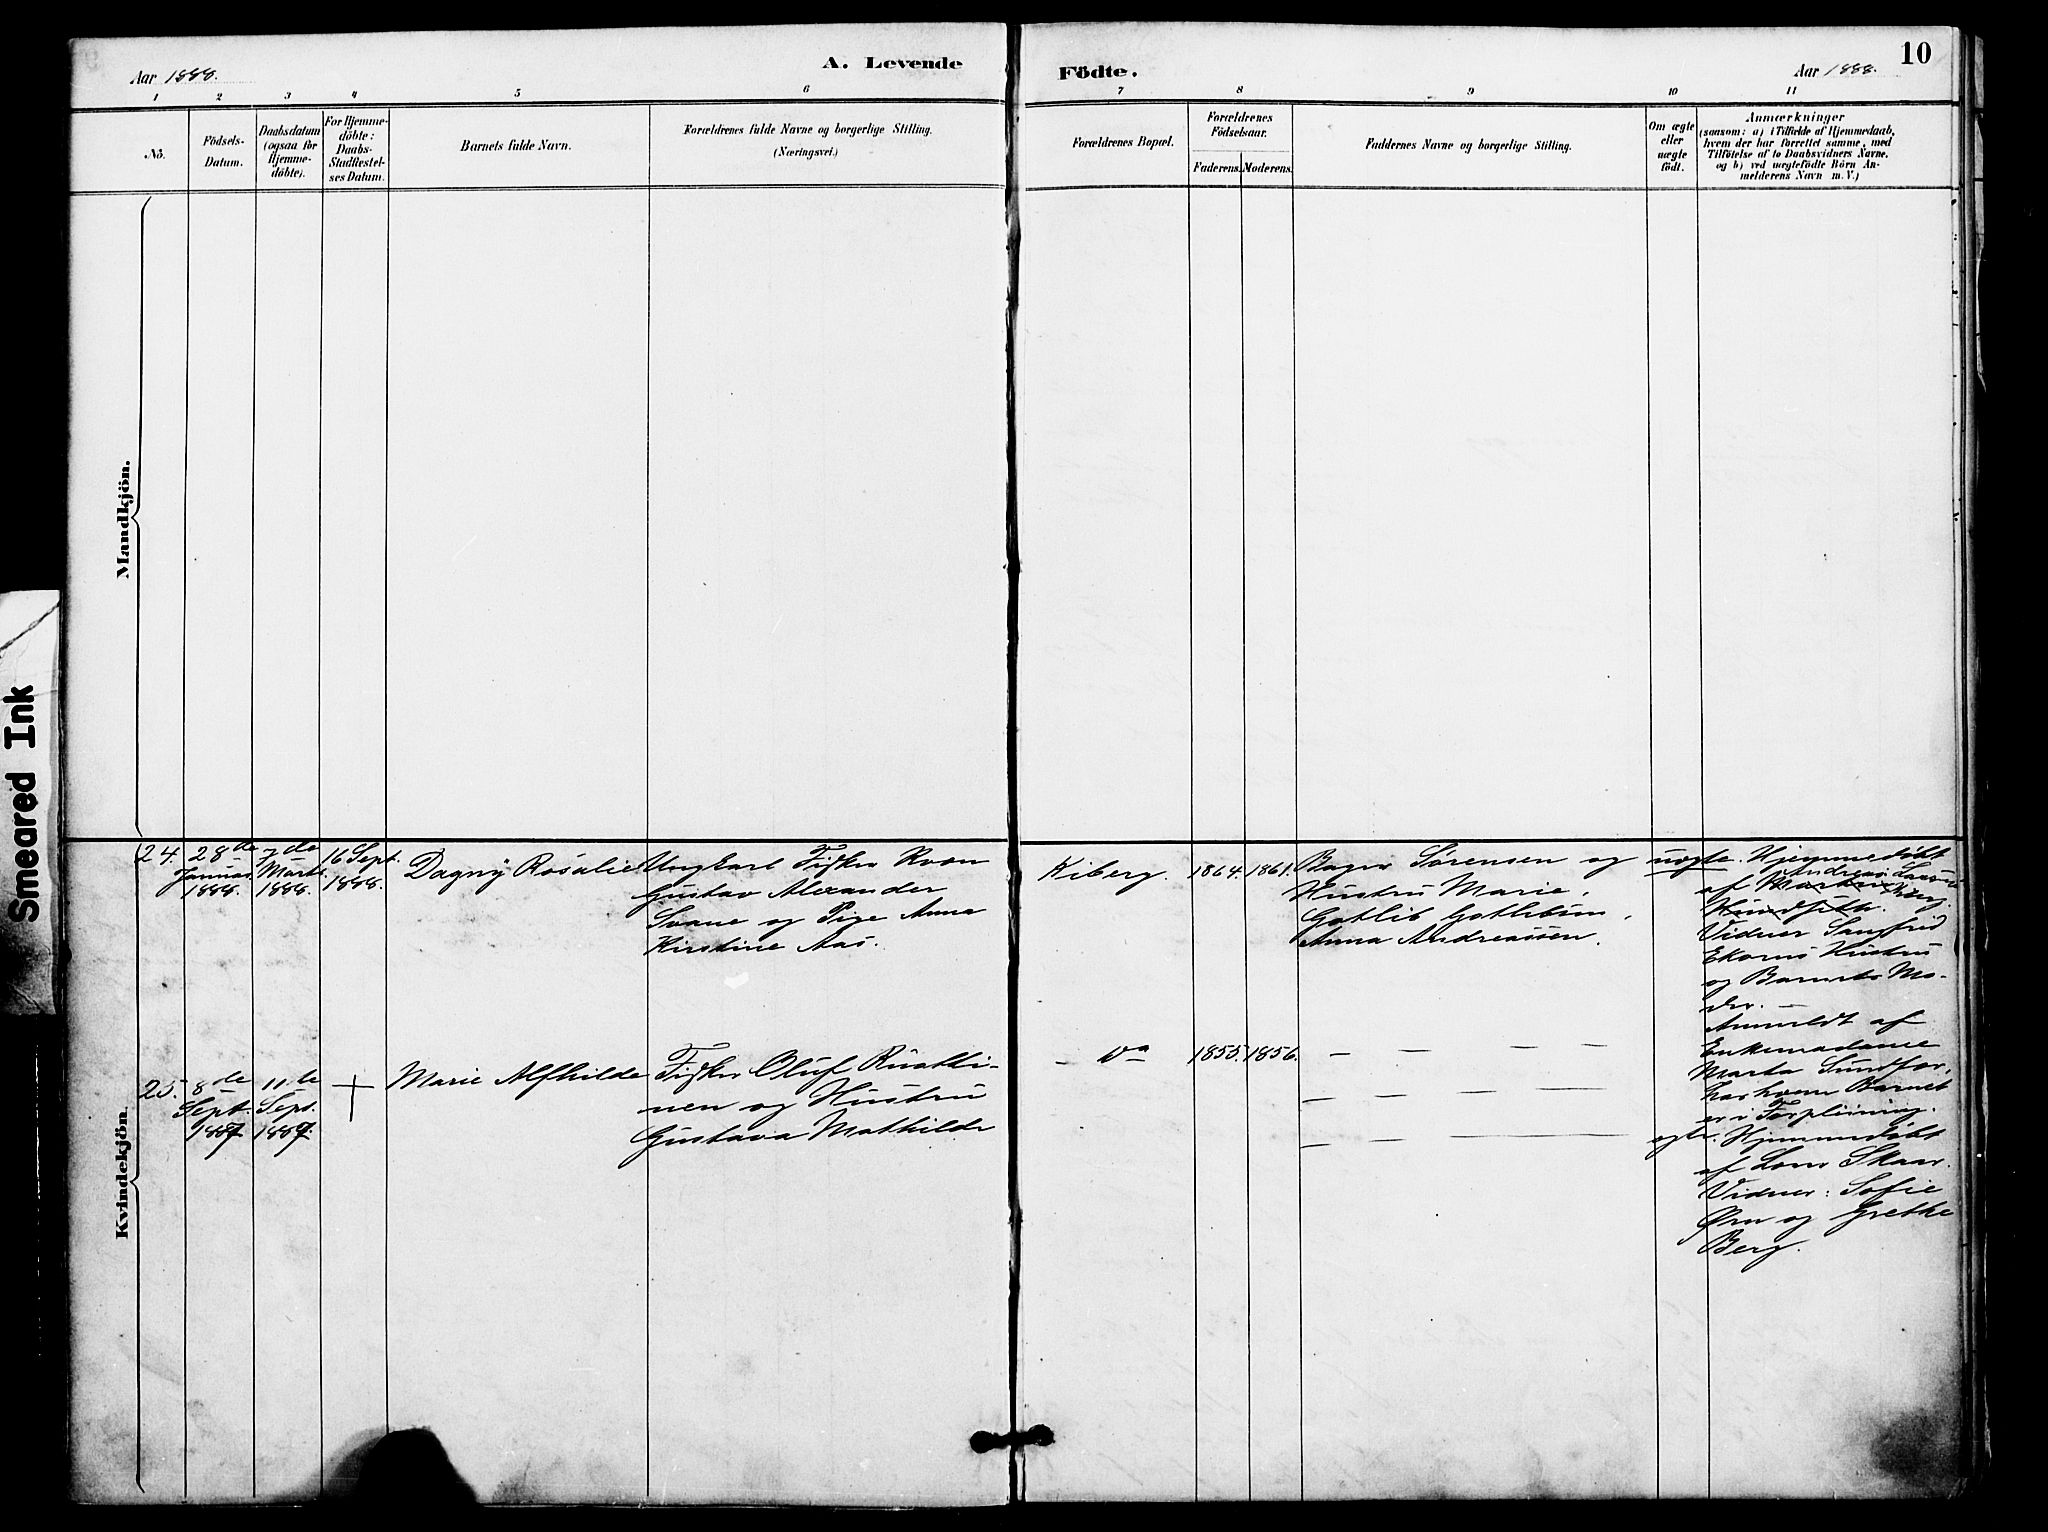 Smeared Ink
Aar 1888.
A. Levende
Födte.
Aar 1888.
10
1 2 3 4 5 6
7 8 9 10 11
Nō.
Födsels-
Datum.
Daabsdatum
(ogsaa for
Hjemme-
döbte).
For Hjemme-
döbte:
Daabs-
Stadfæstel-
ses Datum.
Barnets fulde Navn.
Forældrenes fulde Navne og borgerlige Stilling.
(Næringsvei.)
Forældrenes Bopæl.
Forældrenes
Födselsaar.
Faderens.
Moderens.
Faddernes Navne og borgerlige Stilling.
Om ægte
eller
uægte
födt.
Anmærkninger
(saasom: a) i Tilfælde af Hjemmedaab,
hvem der har forrettet samme, med
Tilföielse af to Daabsvidners Navne,
og b) ved uegtefödte Börn An-
melderens Navn m. V.)
Mandkjön.
Kvindekjön.
24.
28de
Januar
1888.
7de
Marts
1888.
16 Sept.
1888.
Dagny Rosalie
Ungkarl Fisker Kvæn
Gustav Alexander
Svane og Pige Anna
Kirstine Aas.
Kiberg.
1864.
1861.
Sørensen og
Hustru Marie,
Gotlib
Anna Andreassen.
uægte.
Hjemmedøbt
Andreas
af
Berg.
Vidner
Ekorns Hustru
og Barnets Mo-
der.
Anmeldt af
Enkemadame
Marta Sundfør,
hos hvem Barnet
er i Forpleining.
25.
8de
Sept.
1887
11te
Sept.
1887.
+
Marie Alfhilde
Fisker Oluf
nen og Hustru
Gustava Mathilde
— Do
1855.
1856.
— — — —
— — —
— — —
ægte.
Hjemmedøbt
af Skaar.
Vidner: Sofie
Ørn og Grethe
Berg.